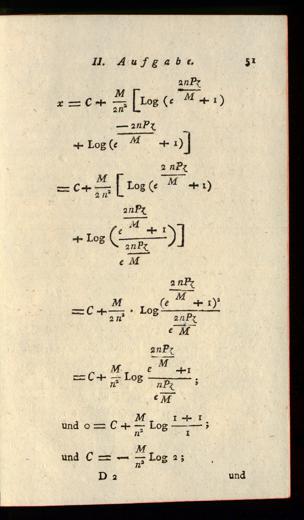 II. Aufgabe. 51
x = C + M/2n² [Log (e^(2nPζ/M) + 1)
+ Log (e^(−2nPζ/M) + 1)]
= C + M/2n² [Log (e^(2nPζ/M) + 1)
+ Log ((e^(2nPζ/M) + 1)/e^(2nPζ/M))]
= C + M/2n² · Log (e^(2nPζ/M) + 1)²/e^(2nPζ/M)
= C + M/n² Log (e^(2nPζ/M) + 1)/e^(nPζ/M);
und 0 = C + M/n² Log (1 + 1)/1;
und C = − M/n² Log 2;
D 2 und